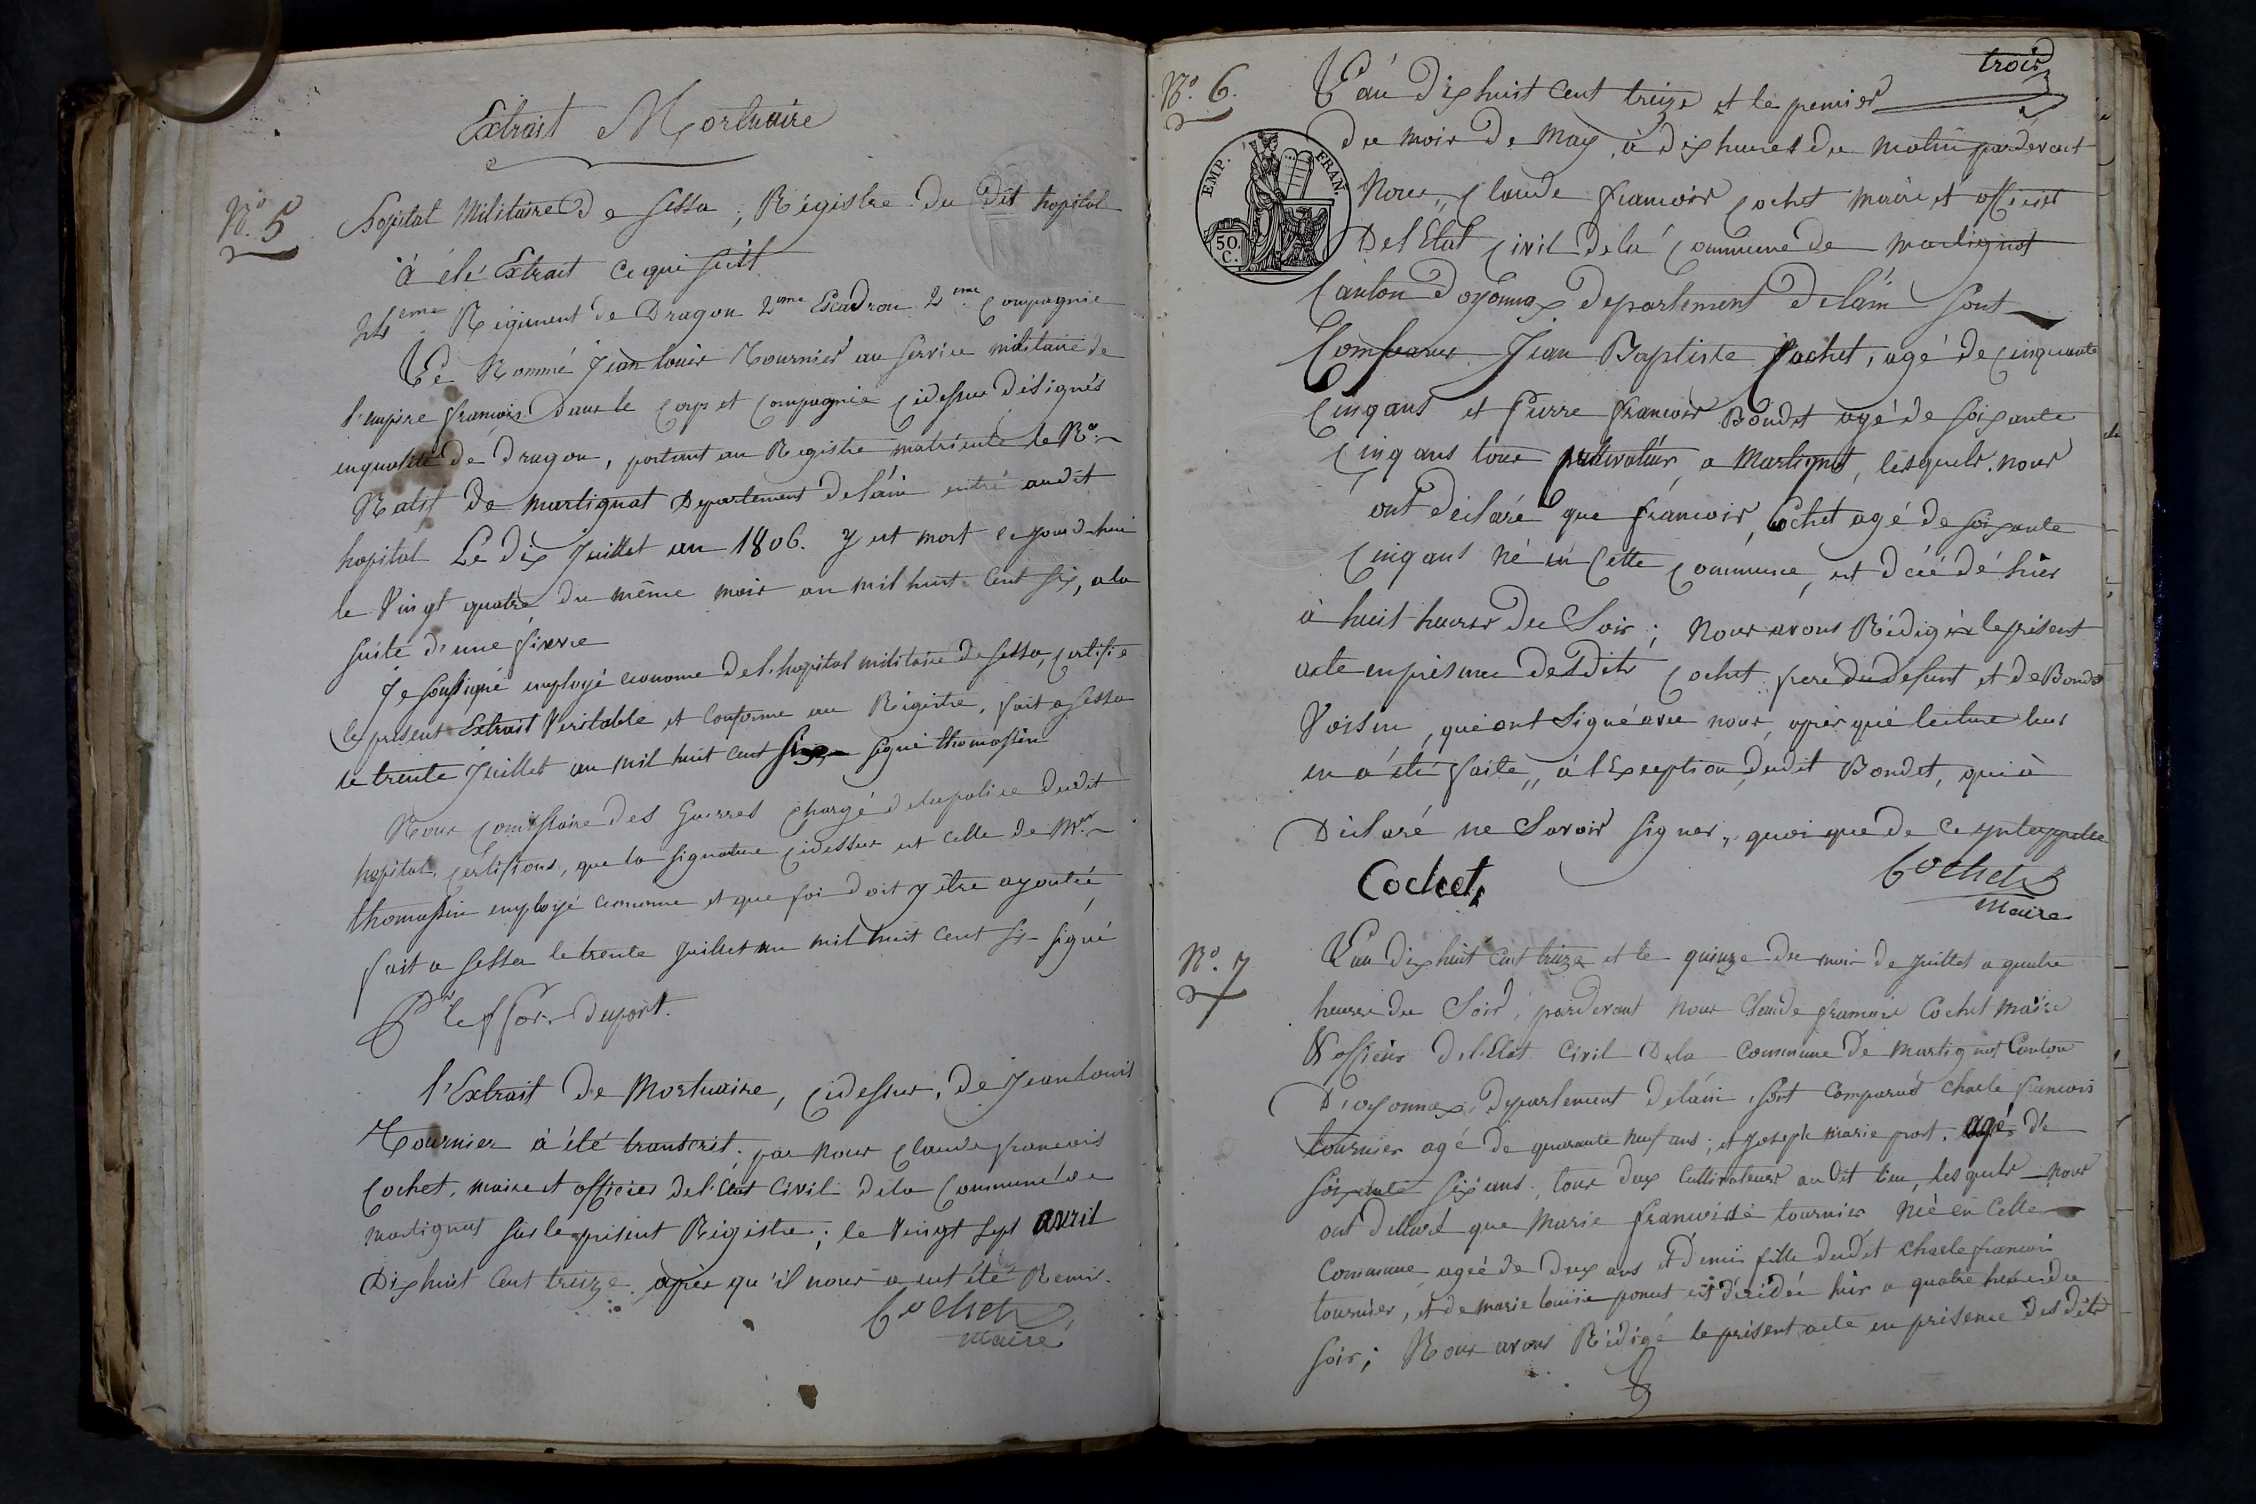 Extrait Mortuaire
N.o 5
hopital Militaire de Sessa, Régistre du dit hopital
à été Extrait ce qui suit
24eme Régiment de Dragon 2eme Escadron 2eme Compagnie
Le Nommé Jean louis Tournier au service militaire de
l'empire francois dans le Corps et Compagnie cidessus désignés
en qualité de dragon, portant au Registre matricule le No.
Natif de martignat Departement de lain entré audit
hopital Le dix Juillet an 1806. y est mort ce jourdhui
le Vingt quatre du même mois an mil huit cent six, a la
suite d'une fievre
Je soussigné employé econome de l'hopital militaire de Sessa, certifie
le present Extrait Veritable et conforme au Régistre, fait a Sessa
le trente Juillet an mil huit cent six signé thomassin
Nous commissaire des Guerres chargé de la police dudit
hopital, certifions, que la signature cidessus est celle de Mr.
thomassin employé econome et que foi doit y être ajoutée,
fait a Sessa le trente Juillet an mil huit cent six signé
duport.
l'Extrait de Mortuaire, cidessus, de Jean louis
Tournier à été transcrit par nous claude francois
cochet, maire et officier de l'état civil de la Commune de
martignat sur le present Régistre; le Vingt sept avril
Dix huit cent treize après qu'il nous a eut été Remis.
Cochet
maire
trois
N.o 6.
EMP. FRAN.
50. C.
L'an Dix huit cent treize et le premier
du mois de May, à dix heures du matin pardevant
Nous, Claude francois Cochet maire et officier
De l'Etat Civil de la Commune de martignat
Canton d'oyonnax departement de lain sont
Comparus Jean Baptiste Cochet, agé de cinquante
cinq ans et Pierre francois Bondet agé de soixante
cinq ans tous cultivateur, a Martignat, lesquels nous
ont déclaré que francois Cochet agé de soixante
cinq ans né en Cette commune, est décédé hier
à huit heures du Soir; Nous avons Rédigés le présent
acte en présence desdits Cochet frere du defunt et de Bondet
Voisin, qui ont signé avec nous, après que lecture leur
en a été faite, à l'Exception dudit Bondet, qui à
Déclaré ne Savoir signer, quoi que de ce interppellé
Cochet
Cochet
maire
N.o 7
L'an dix huit cent treize et le quinze du mois de juillet a quatre
heures du Soir, pardevant nous Claude francois Cochet Maire
& officier de l'Etat Civil De la Commune De martignat Canton
D'oyonnax, departement de lain, sont Comparus charle francois
tournier agé de quarante neuf ans, et Joseph marie prost, agé de
soixante six ans, tous deux Cultivateurs au dit lieu, lesquels nous
ont declaré que Marie francoise tournier Née en Cette
Commune agée de deux ans et demie fille dudit charle francois
tournier, et de marie louise poncet est décédée hier a quatre heures du
soir; Nous avons Rédigé le présent acte en présence des dits